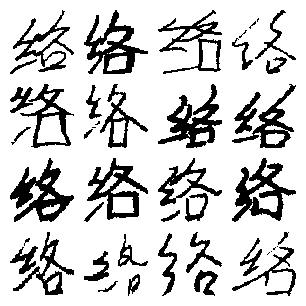 络络络络
络络络络
络络络络
络络络络